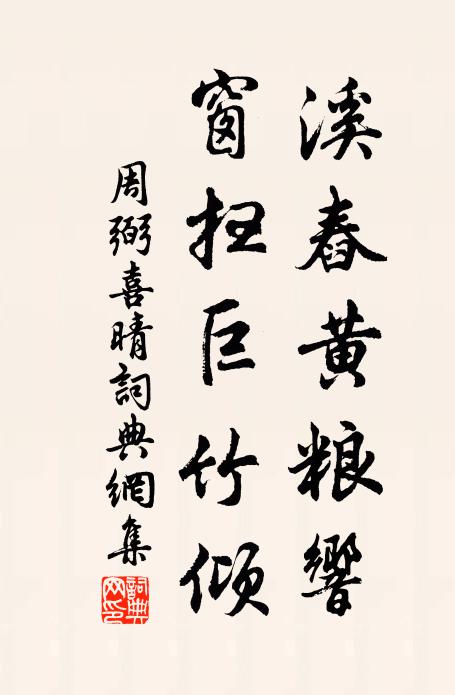 溪舂黄粮響
窗扫巨竹傾
周弼喜晴詞典網集
詞典網印